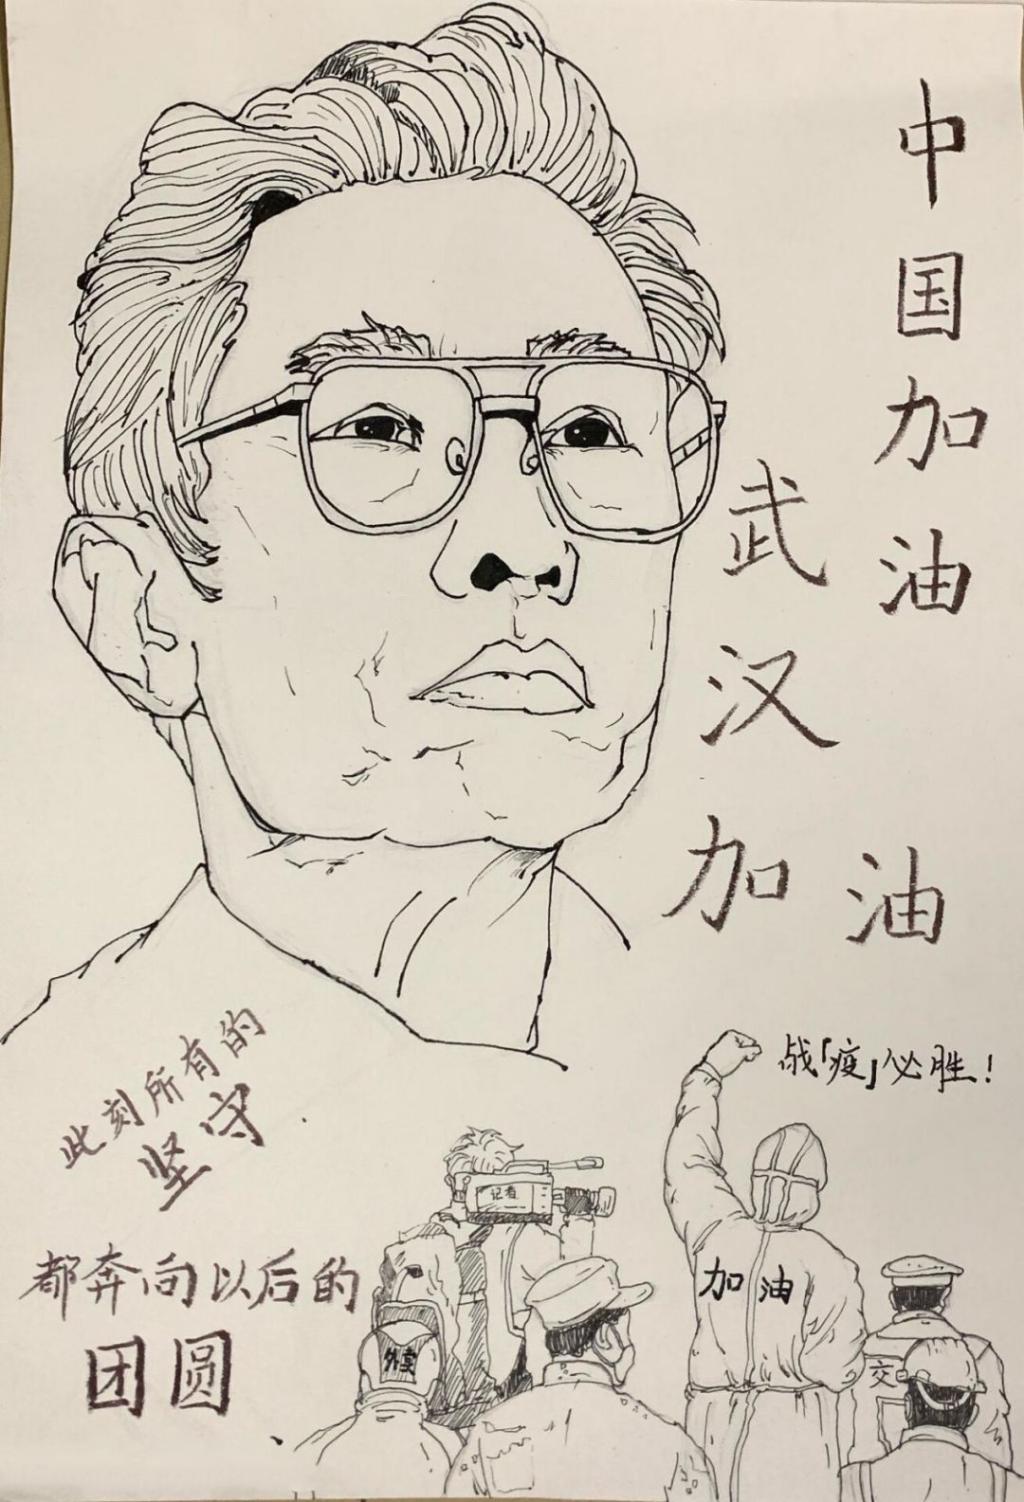 中国加油
武汉加油
战「疫」必胜！
此刻所有的
坚守
都奔向以后的
团圆
记者
外卖
加油
交